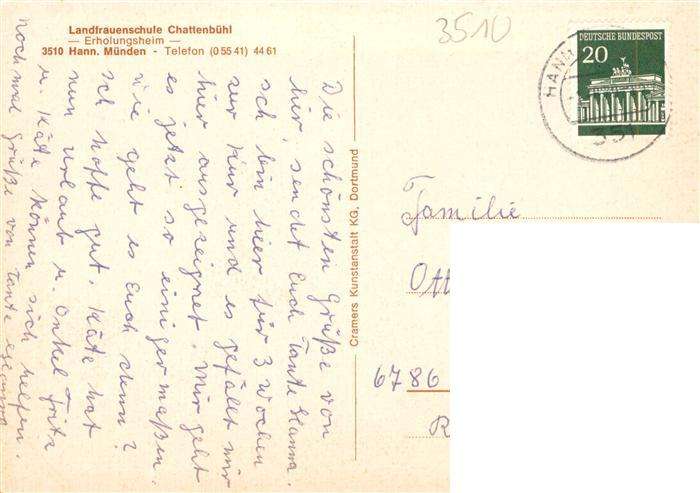 Landfrauenschule Chattenbühl
— Erholungsheim —
3510 Hann. Münden - Telefon (0 55 41) 44 61
3510
DEUTSCHE BUNDESPOST
20
HANN
351
Die schönsten Grüße von
hier, sendet Euch Tante Hanna.
Ich bin hier für 3 Wochen
zur Kur und es gefällt mir
hier ausgezeignet. Mir geht
es jetzt so einigermaßen.
Wie geht es Euch denn?
Ich hoffe gut. Käte hat
nun Urlaub u. Onkel Fritz
u. Käte können sich helfen.
nochmal Grüße von Tante
Cramers Kunstanstalt KG, Dortmund
Familie
Ott
6786
R